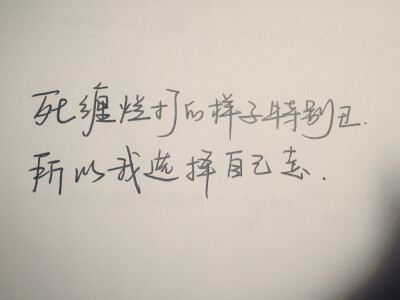 死缠烂打的样子特别丑.
所以我选择自己走.